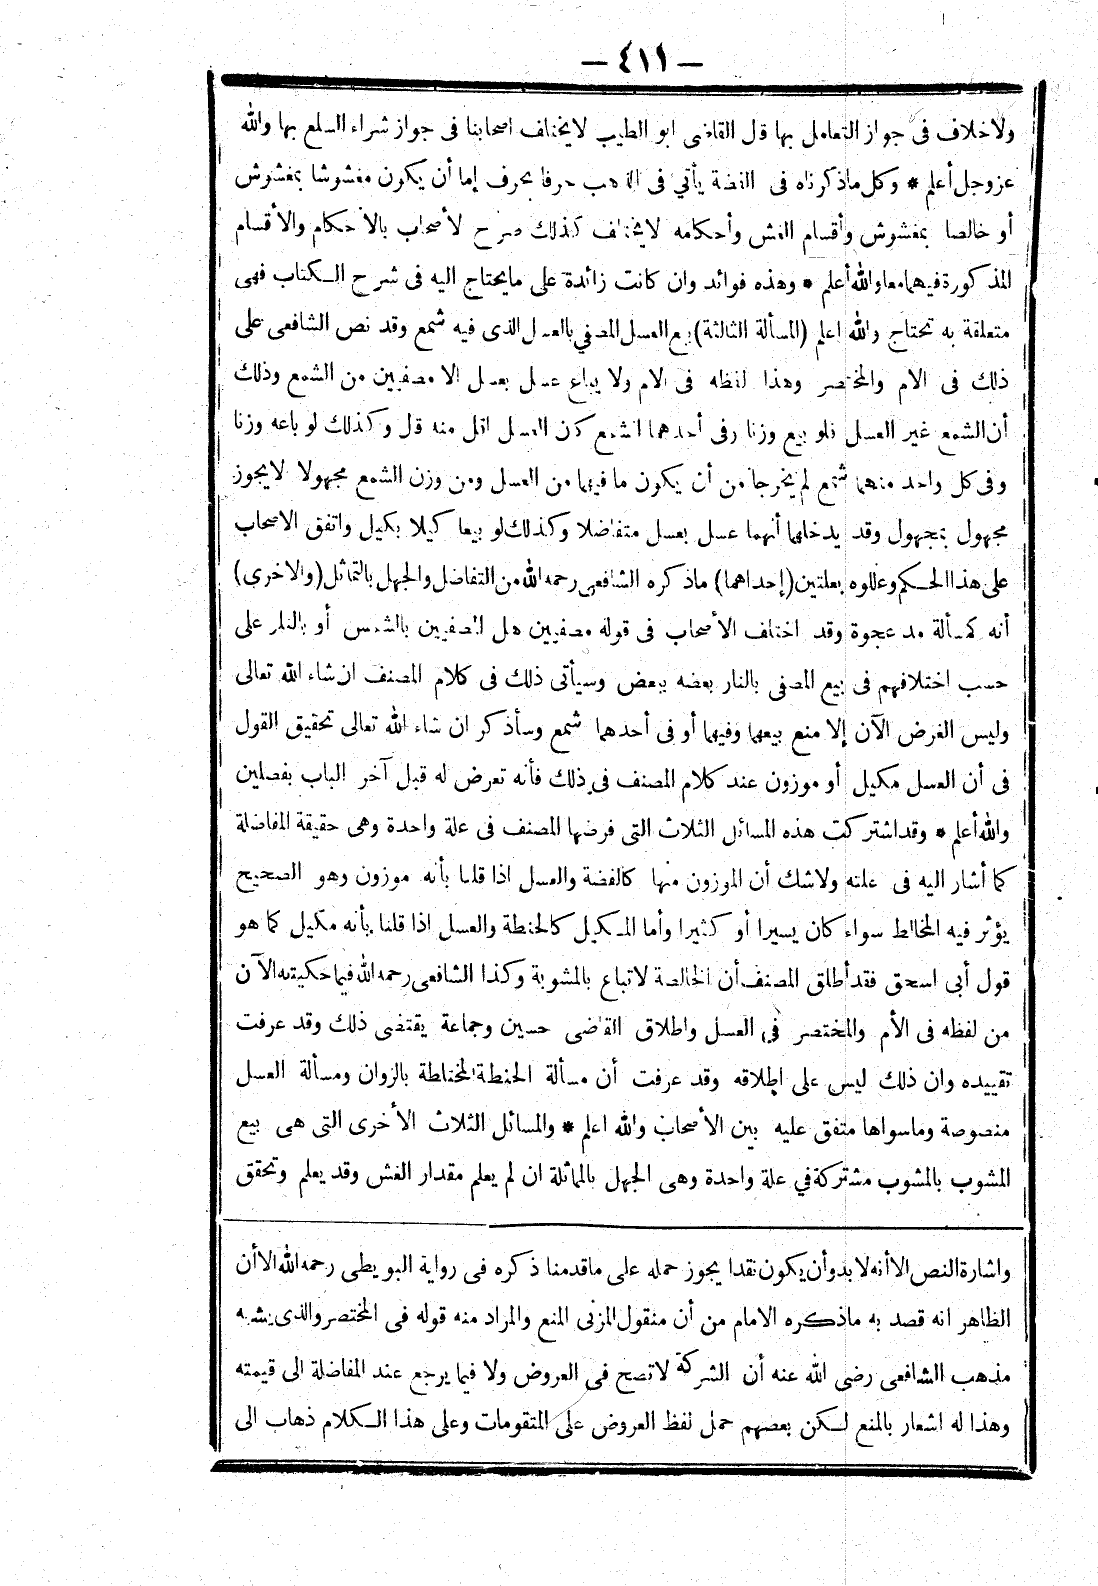 — ٤١١ —
ولاخلاف فى جواز التعامل بها قل القاضى ابو الطيب لايختلف اصحابنا فى جواز شراء السلع بها والله
عزوجل أعلم * وكل ماذكرناه فى الفضة يأتي فى الذهب حرفا بحرف إما أن يكون مغشوشا بمغشوش
أو خالصا بمغشوش وأقسام الغش وأحكامه لايختلف كذلك صرح لأصحاب بالأحكام والأقسام
المذكورة فيهما معا والله أعلم * وهذه فوائد وان كانت زائدة على مايحتاج اليه فى شرح الكتاب فهى
متعلقة به تحتاج والله اعلم (المسألة الثالثة) بيع العسل المصفي بالعسل الذى فيه شمع وقد نص الشافعى على
ذلك فى الام والمختصر وهذا لفظه فى الام ولا يباع عسل بعسل الا مصفيين من الشمع وذلك
أن الشمع غير العسل فلو بيع وزنا وفى أحدهما الشمع كان العسل اقل منه قل وكذلك لو باعه وزنا
وفى كل واحد منهما شمع لم يخرجا من أن يكون ما فيهما من العسل ومن وزن الشمع مجهولا لايجوز
مجهول بمجهول وقد يدخلهما أنهما عسل بعسل متفاضلا وكذلك لو بيعا كيلا بكيل واتفق الاصحاب
على هذا الحكم وعللوه بعلتين (إحداهما) ماذكره الشافعى رحمه الله من التفاضل والجهل بالتماثل (والاخرى)
أنه كمسألة مد عجوة وقد اختلف الأصحاب فى قوله مصفيين هل المصفيين بالشمس أو بالنار على
حسب اختلافهم فى بيع المصفى بالنار بعضه ببعض وسيأتى ذلك فى كلام المصنف ان شاء الله تعالى
وليس الغرض الآن إلا منع بيعهما وفيهما أو فى أحدهما شمع وسأذكر ان شاء الله تعالى تحقيق القول
فى أن العسل مكيل أو موزون عند كلام المصنف فى ذلك فأنه تعرض له قبل آخر الباب بفصلين
والله أعلم * وقد اشتركت هذه المسائل الثلاث التى فرضها المصنف فى علة واحدة وهى حقيقة المفاضلة
كما أشار اليه فى علته ولاشك أن الموزون منها كالفضة والعسل اذا قلنا بأنه موزون وهو الصحيح
يؤثر فيه المخالط سواء كان يسيرا أو كثيرا وأما المكيل كالحنطة والعسل اذا قلنا بأنه مكيل كما هو
قول أبى اسحق فقد أطلق المصنف أن الخالصة لاتباع بالمشوبة وكذا الشافعى رحمه الله فيما حكيته الآن
من لفظه فى الأم والمختصر في العسل واطلاق القاضى حسين وجماعة يقتضى ذلك وقد عرفت
تقييده وان ذلك ليس على اطلاقه وقد عرفت أن مسألة الحنطة المختلطة بالزوان ومسألة العسل
منصوصة وماسواها متفق عليه بين الأصحاب والله اعلم * والمسائل الثلاث الأخرى التى هى بيع
المشوب بالمشوب مشتركة في علة واحدة وهى الجهل بالمماثلة ان لم يعلم مقدار الغش وقد يعلم وتحقق
واشارة النص الاأنه لا بدوأن يكون نقدا يجوز حمله على ماقدمنا ذكره فى رواية البويطى رحمه الله الاأن
الظاهر انه قصد به ماذكره الامام من أن منقول المزنى المنع والمراد منه قوله فى المختصر والذى يشبه
مذهب الشافعى رضى الله عنه أن الشركة لاتصح فى العروض ولا فيما يرجع عند المفاضلة الى قيمته
وهذا له اشعار بالمنع لكن بعضهم حمل لفظ العروض على المتقومات وعلى هذا الكلام ذهاب الى